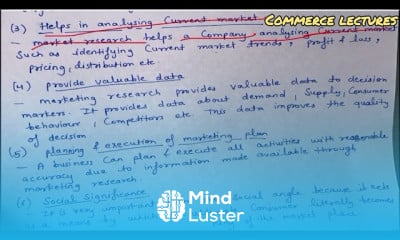 COMMERCE LECTURES
(3) Helps in analysing Current market
- market research helps a Company analysing Current market
Such as identifying Current market trends, profit & loss,
pricing, distribution etc
(4) provide valuable data
- marketing research provides valuable data to decision
markers. It provides data about demand, Supply, Consumer
behaviour, Competitors etc. This data improves the quality
of decision
(5) planning & execution of marketing plan
- A business Can plan & execute all activities with reasonable
accuracy due to information made available through
marketing research.
Social Significance
It is very important social angle because it acts
is a means by Consumer literally becomes
of the market place
Mind
Luster